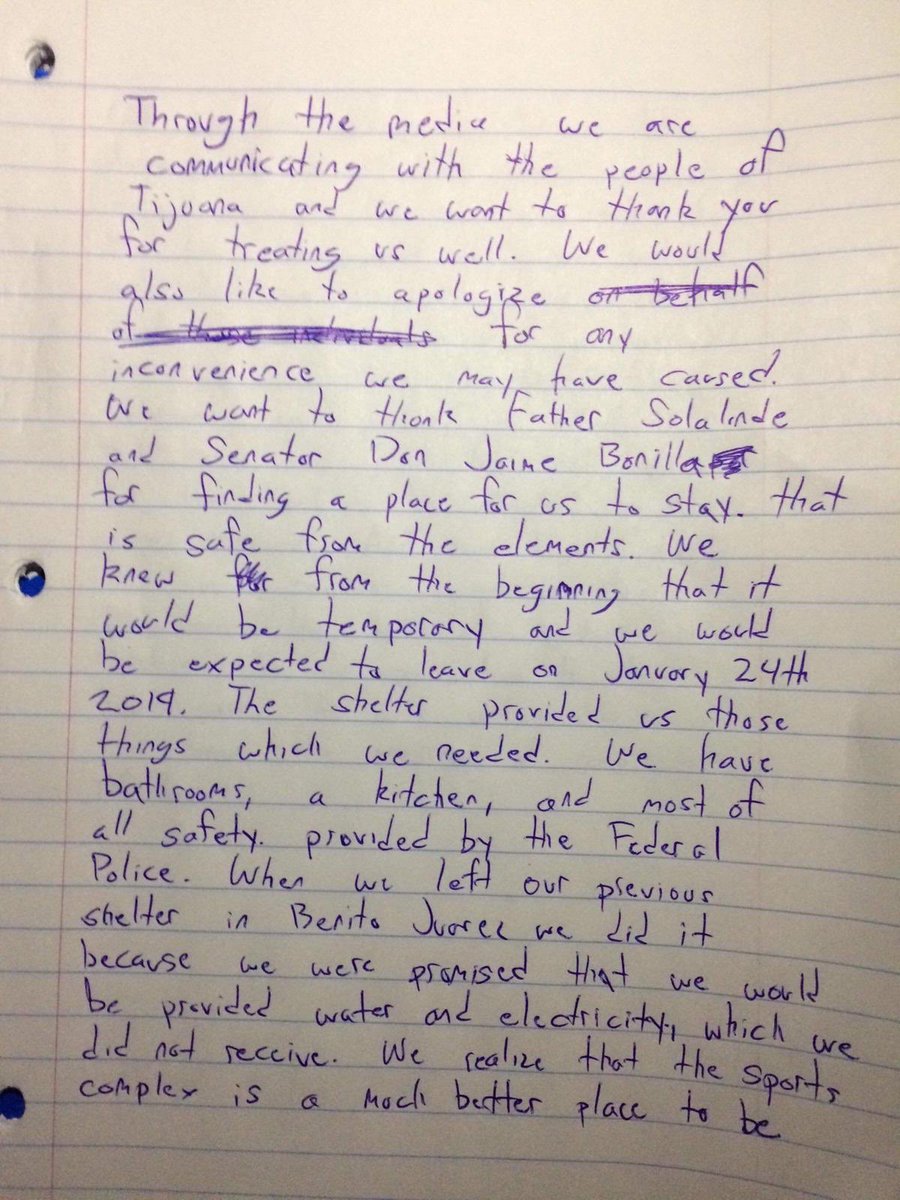 Through the media we are
communicating with the people of
Tijuana and we want to thank you
for treating us well. We would
also like to apologize on behalf
of those individuals for any
inconvenience we may have caused.
We want to thank Father Solalinde
and Senator Don Jaime Bonilla
for finding a place for us to stay. that
is safe from the elements. We
knew from the beginning that it
would be temporary and we would
be expected to leave on January 24th
2019. The shelter provided us those
things which we needed. We have
bathrooms, a kitchen, and most of
all safety. provided by the Federal
Police. When we left our previous
shelter in Benito Juarez we did it
because we were promised that we would
be provided water and electricity, which we
did not receive. We realize that the sports
complex is a much better place to be